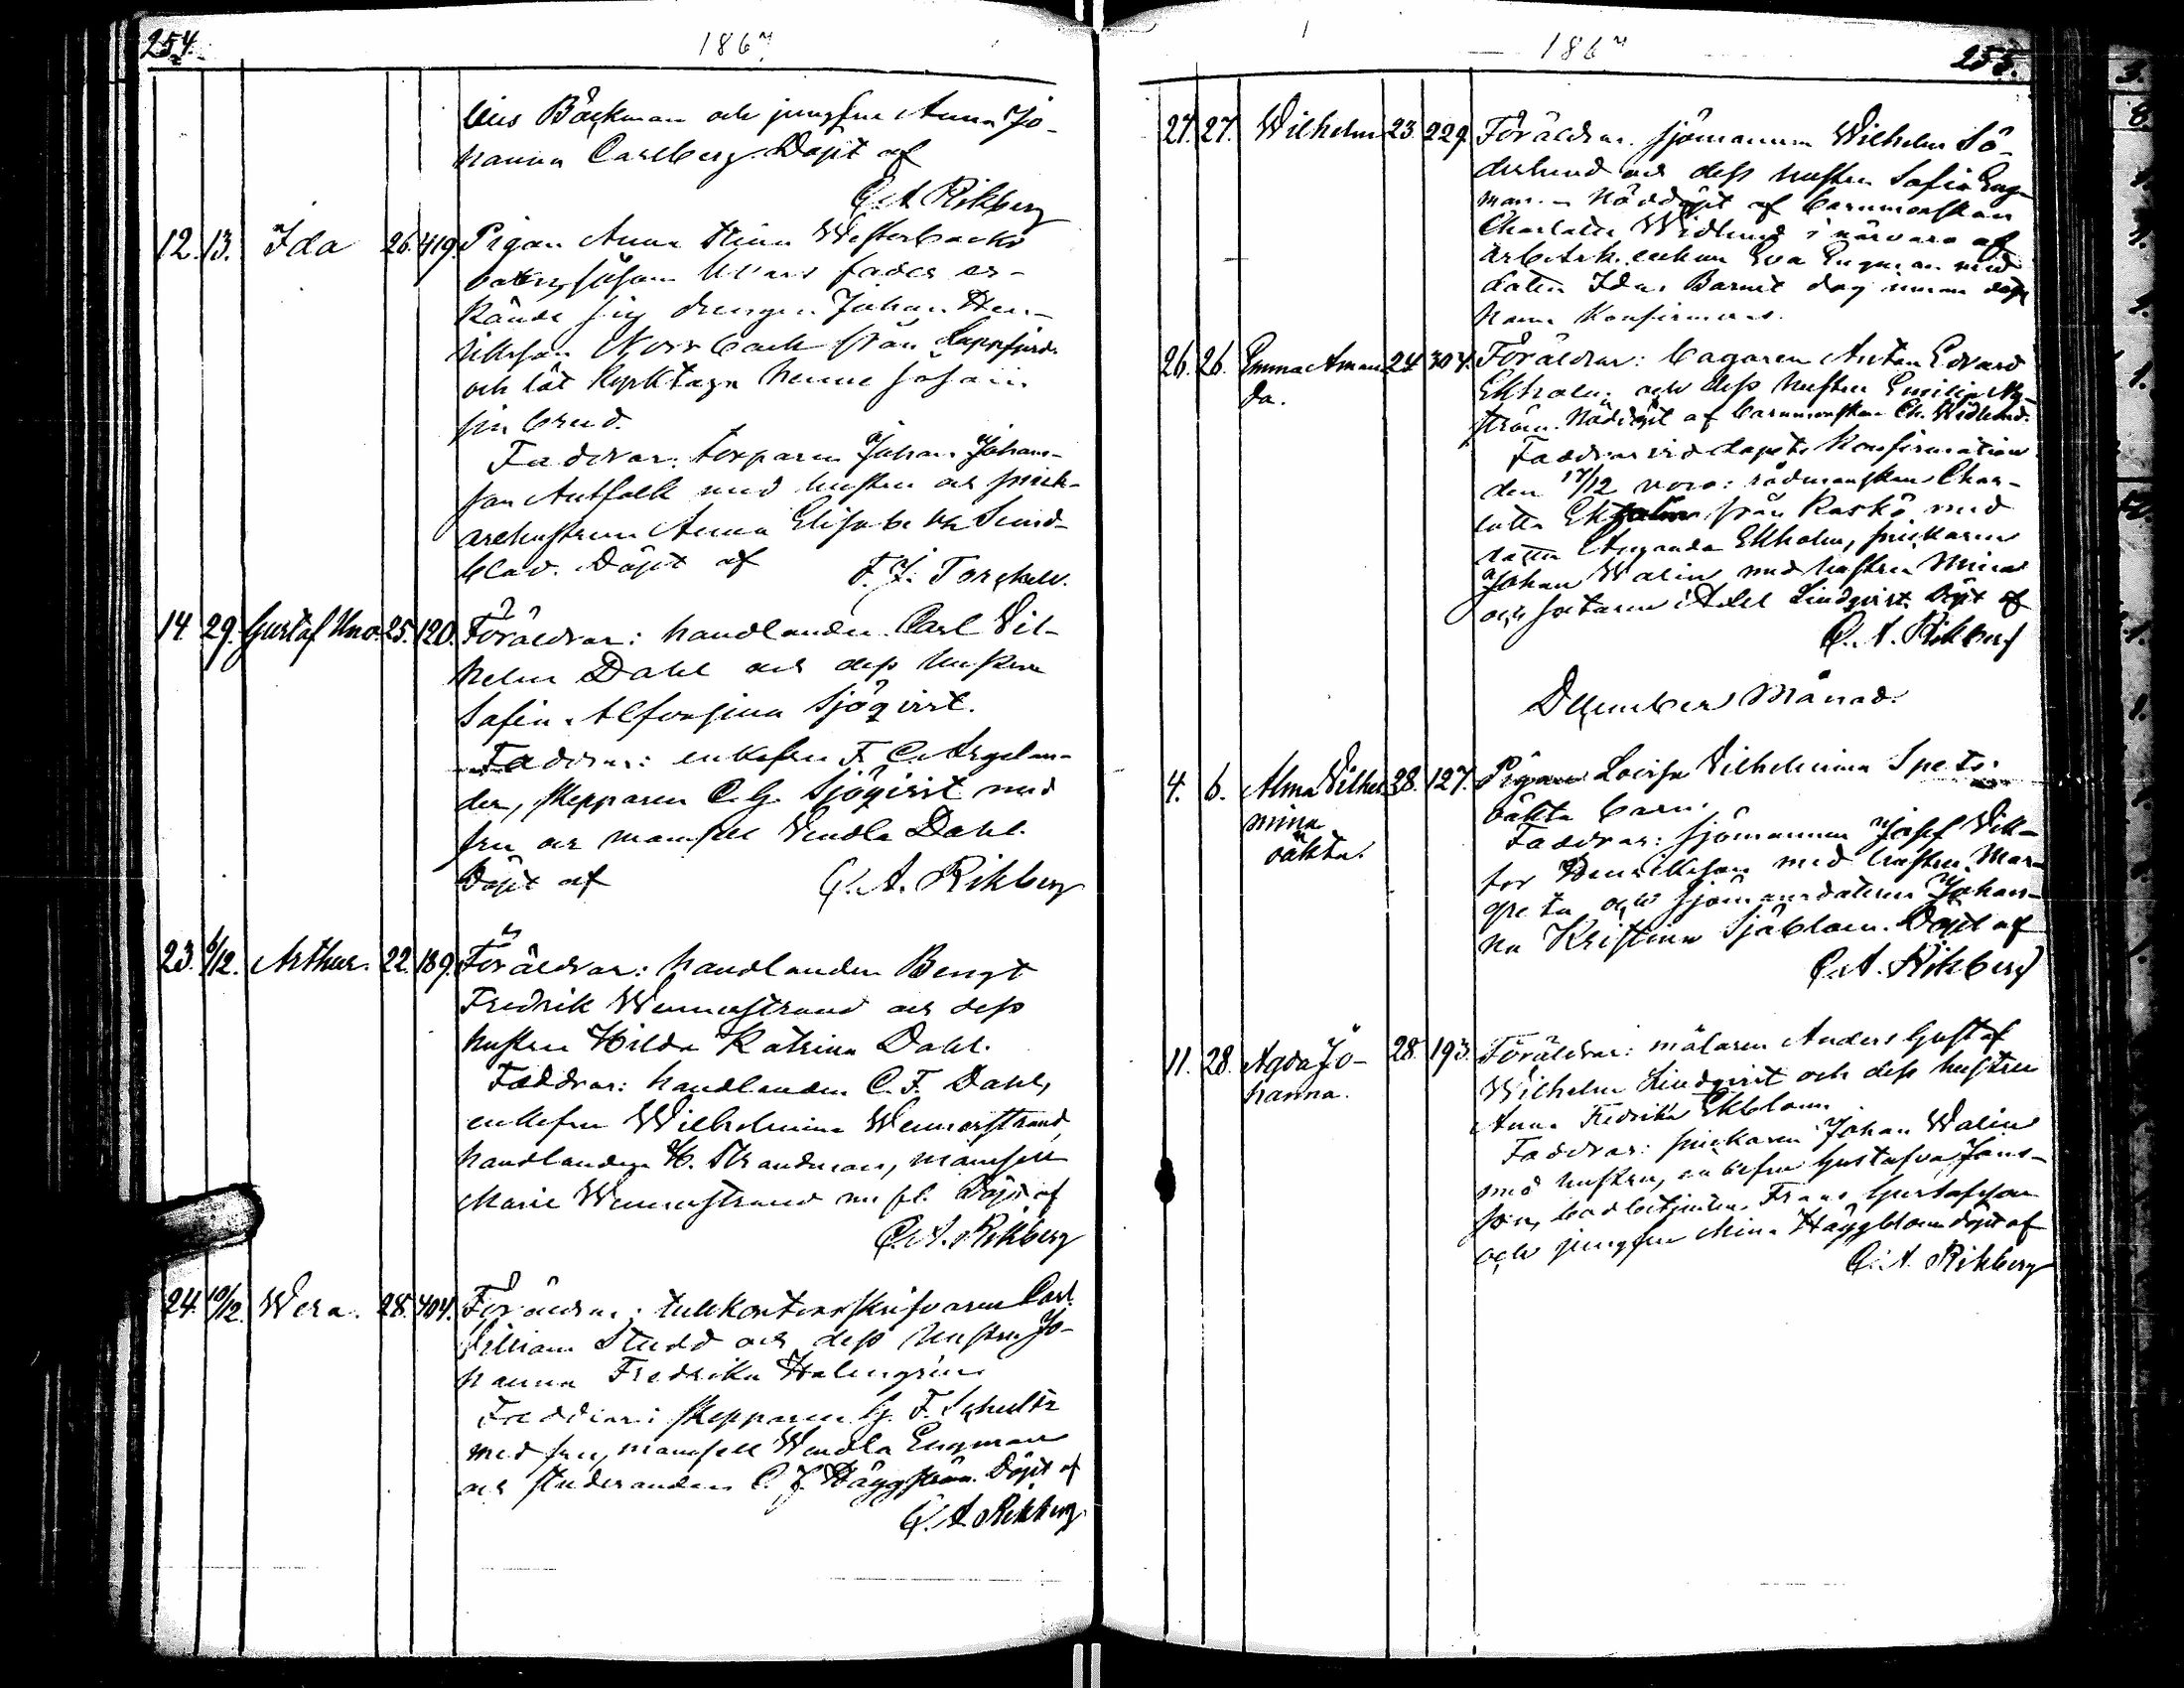 254.
1867
lius Bäckman och jungfru Anna Jo-
hanna Carlberg. Döpt af
C. A. Rikberg
12. 13. Ida 26. 419. Pigan Anna Stina Westerbacks
barn, såsom hvars fader er-
kände sig drengen Johan Hen-
riksson Norrback från Lappfjerd
och lät kyrktaga henne såsom
sin brud.
Faddrar: torparen Johan Johans-
son Antfolk med hustru och snick-
arehustrun Anna Elisabeth Sund-
blad. Döpt af F. J. Torckell.
14 29. Gustaf Uno. 25. 120. Föräldrar: handlanden Carl Vil-
helm Dahl och dess hustru
Sofia Alfonsina Sjöqvist.
Faddrar: enkefru F. C. Argelan-
der, skepparen C. G. Sjöqvist med
fru och mamsell Wendla Dahl.
Döpt af C. A. Rikberg
23. 6/12. Arthur. 22. 189. Föräldrar: handlanden Bengt
Fredrik Wennerstrand och dess
hustru Hilda Katrina Dahl.
Faddrar: handlanden C. F. Dahl,
enkefru Wilhelmina Wennerstrand,
handlanden H. Strandman, mamsell
Marie Wennerstrand m. fl. Döpt af
C. A. Rikberg
24. 10/12. Wera. 28. 404. Föräldrar: tullkontorsskrifvaren Carl
William Studd och dess hustru Jo-
hanna Fredrika Holmgrén
Faddrar: skepparen G. F. Schultz
med fru, mamsell Wendla Engman
och studeranden C. J. Häggström. Döpt af
C. A. Rikberg.
1867
255.
27. 27. Wilhelm 23 229. Föräldrar: sjömannen Wilhelm Sö-
derlund och dess hustru Sofia Eng-
man. Nöddöpt af barnmorskan
Charlotta Widlund i närvaro af
arbetsk. enkan Eva Engman med
dottern Ida. Barnet dog innan dopet
hann konfirmeras.
26. 26. Emma Aman- 24 304. Föräldrar: bagaren Anton Edvard
da. Ekholm och dess hustru Emilia Ny-
ström. Nöddöpt af barnmorskan Ch. Widlund.
Faddrar vid dopets konfirmation
den 17/12 voro: rådmanskan Char-
lotta Ekholm från Kaskö med
dotter Amanda Ekholm, snickaren
Johan Walin med hustru Mina
och Lindqvist. Döpt af
C. A. Rikberg
December Månad.
4. 6. Alma Vilhel- 28. 127. Pigan Lovisa Vilhelmina Spets
mina oäkta barn.
oäkta. Faddrar: sjömannen Josef Vik-
tor Henriksson med hustru Mar-
greta och sjömansdottren Johan-
na Kristina Sjöblom. Döpt af
C. A. Rikberg
11. 28. Agda Jo- 28. 193. Föräldrar: målaren Anders Gustaf
hanna. Wilhelm Lindqvist och dess hustru
Anna Fredrika Ekblom.
Faddrar: snickaren Johan Walin
med hustru, enkefru Gustafva Jans-
son, bodbetjenten Frans Gustafsson
och jungfru Mina Häggblom. Döpt af
C. A. Rikberg